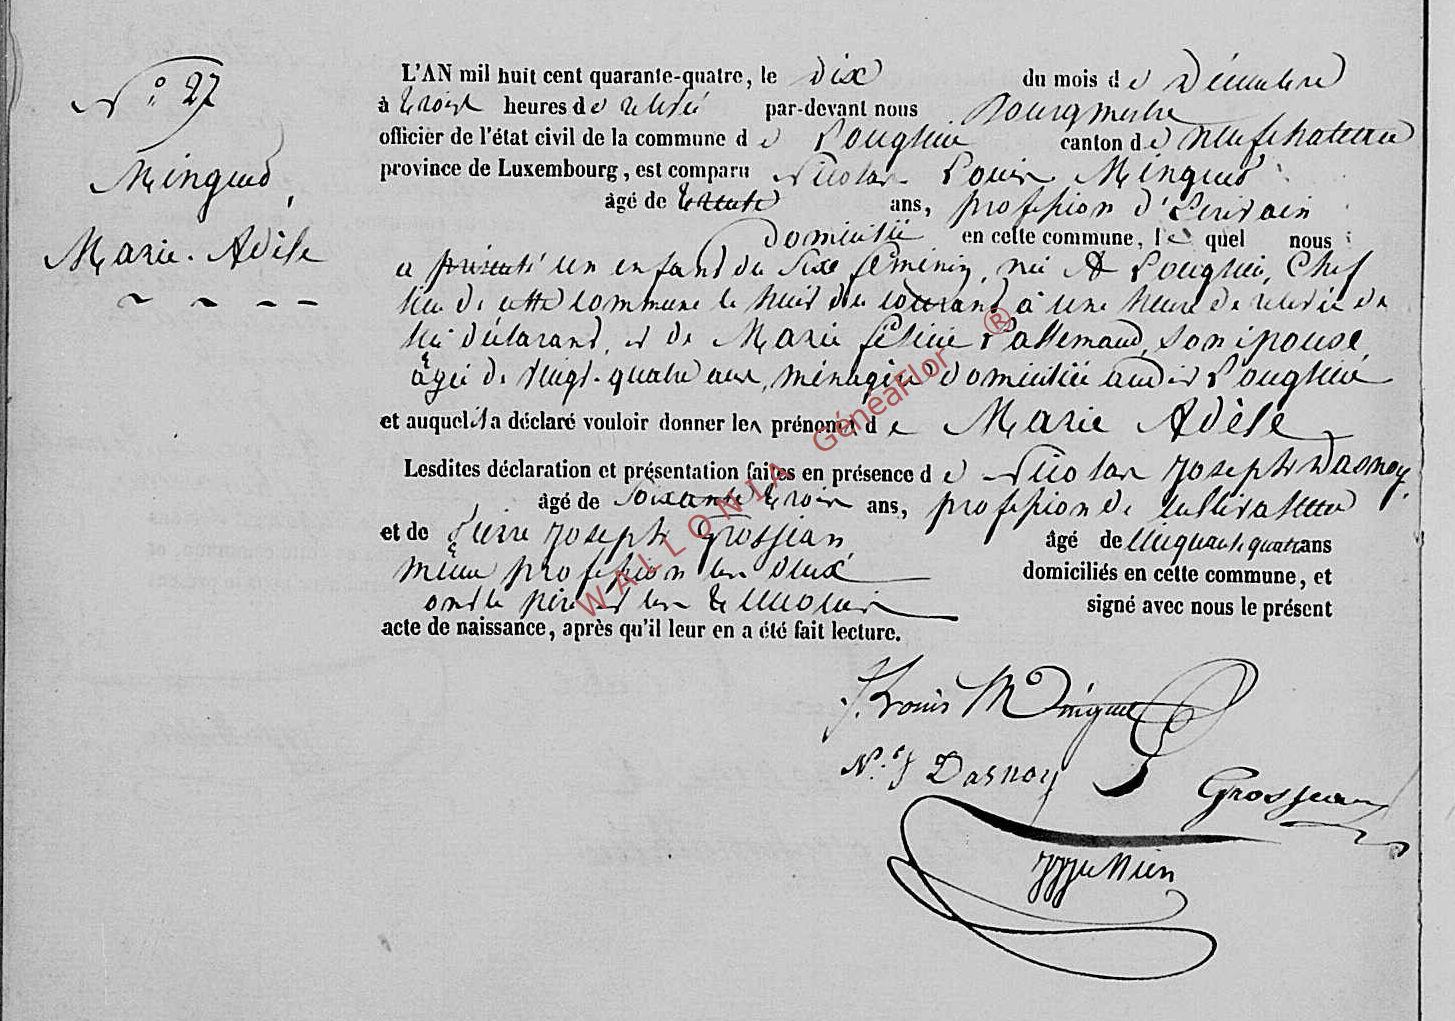 N.° 27
Minguet,
Marie-Adèle
L'AN mil huit cent quarante-quatre, le dix du mois de Décembre
à trois heures de relevée par-devant nous Bourgmestre
officier de l'état civil de la commune de Longlier canton de neufchateau
province de Luxembourg, est comparu Nicolas Louis Minguet
âgé de trente ans, profession d'Ecrivain
Domicilié en cette commune, le quel nous
a présenté un enfant du sexe féminin, née à Longlier, Chef
lieu de cette commune le huit du courant à une heure de relevée de
lui déclarant, et de Marie félicie Lallemand, son épouse,
agée de vingt-quatre ans, ménagère domiciliée audit Longlier
et auquel il a déclaré vouloir donner les prénoms de Marie Adèle
Lesdites déclaration et présentation faites en présence de Nicolas Joseph Dasnoy,
âgé de soixante trois ans, profession de cultivateur
et de Pierre Joseph Grosjean, âgé de cinquante quatre ans
même profession les deux domiciliés en cette commune, et
ont le père et les témoins signé avec nous le présent
acte de naissance, après qu'il leur en a été fait lecture.
Louis Minguet
N. J Dasnoy
Grosjean
WALLONIA GéneaFlor ®